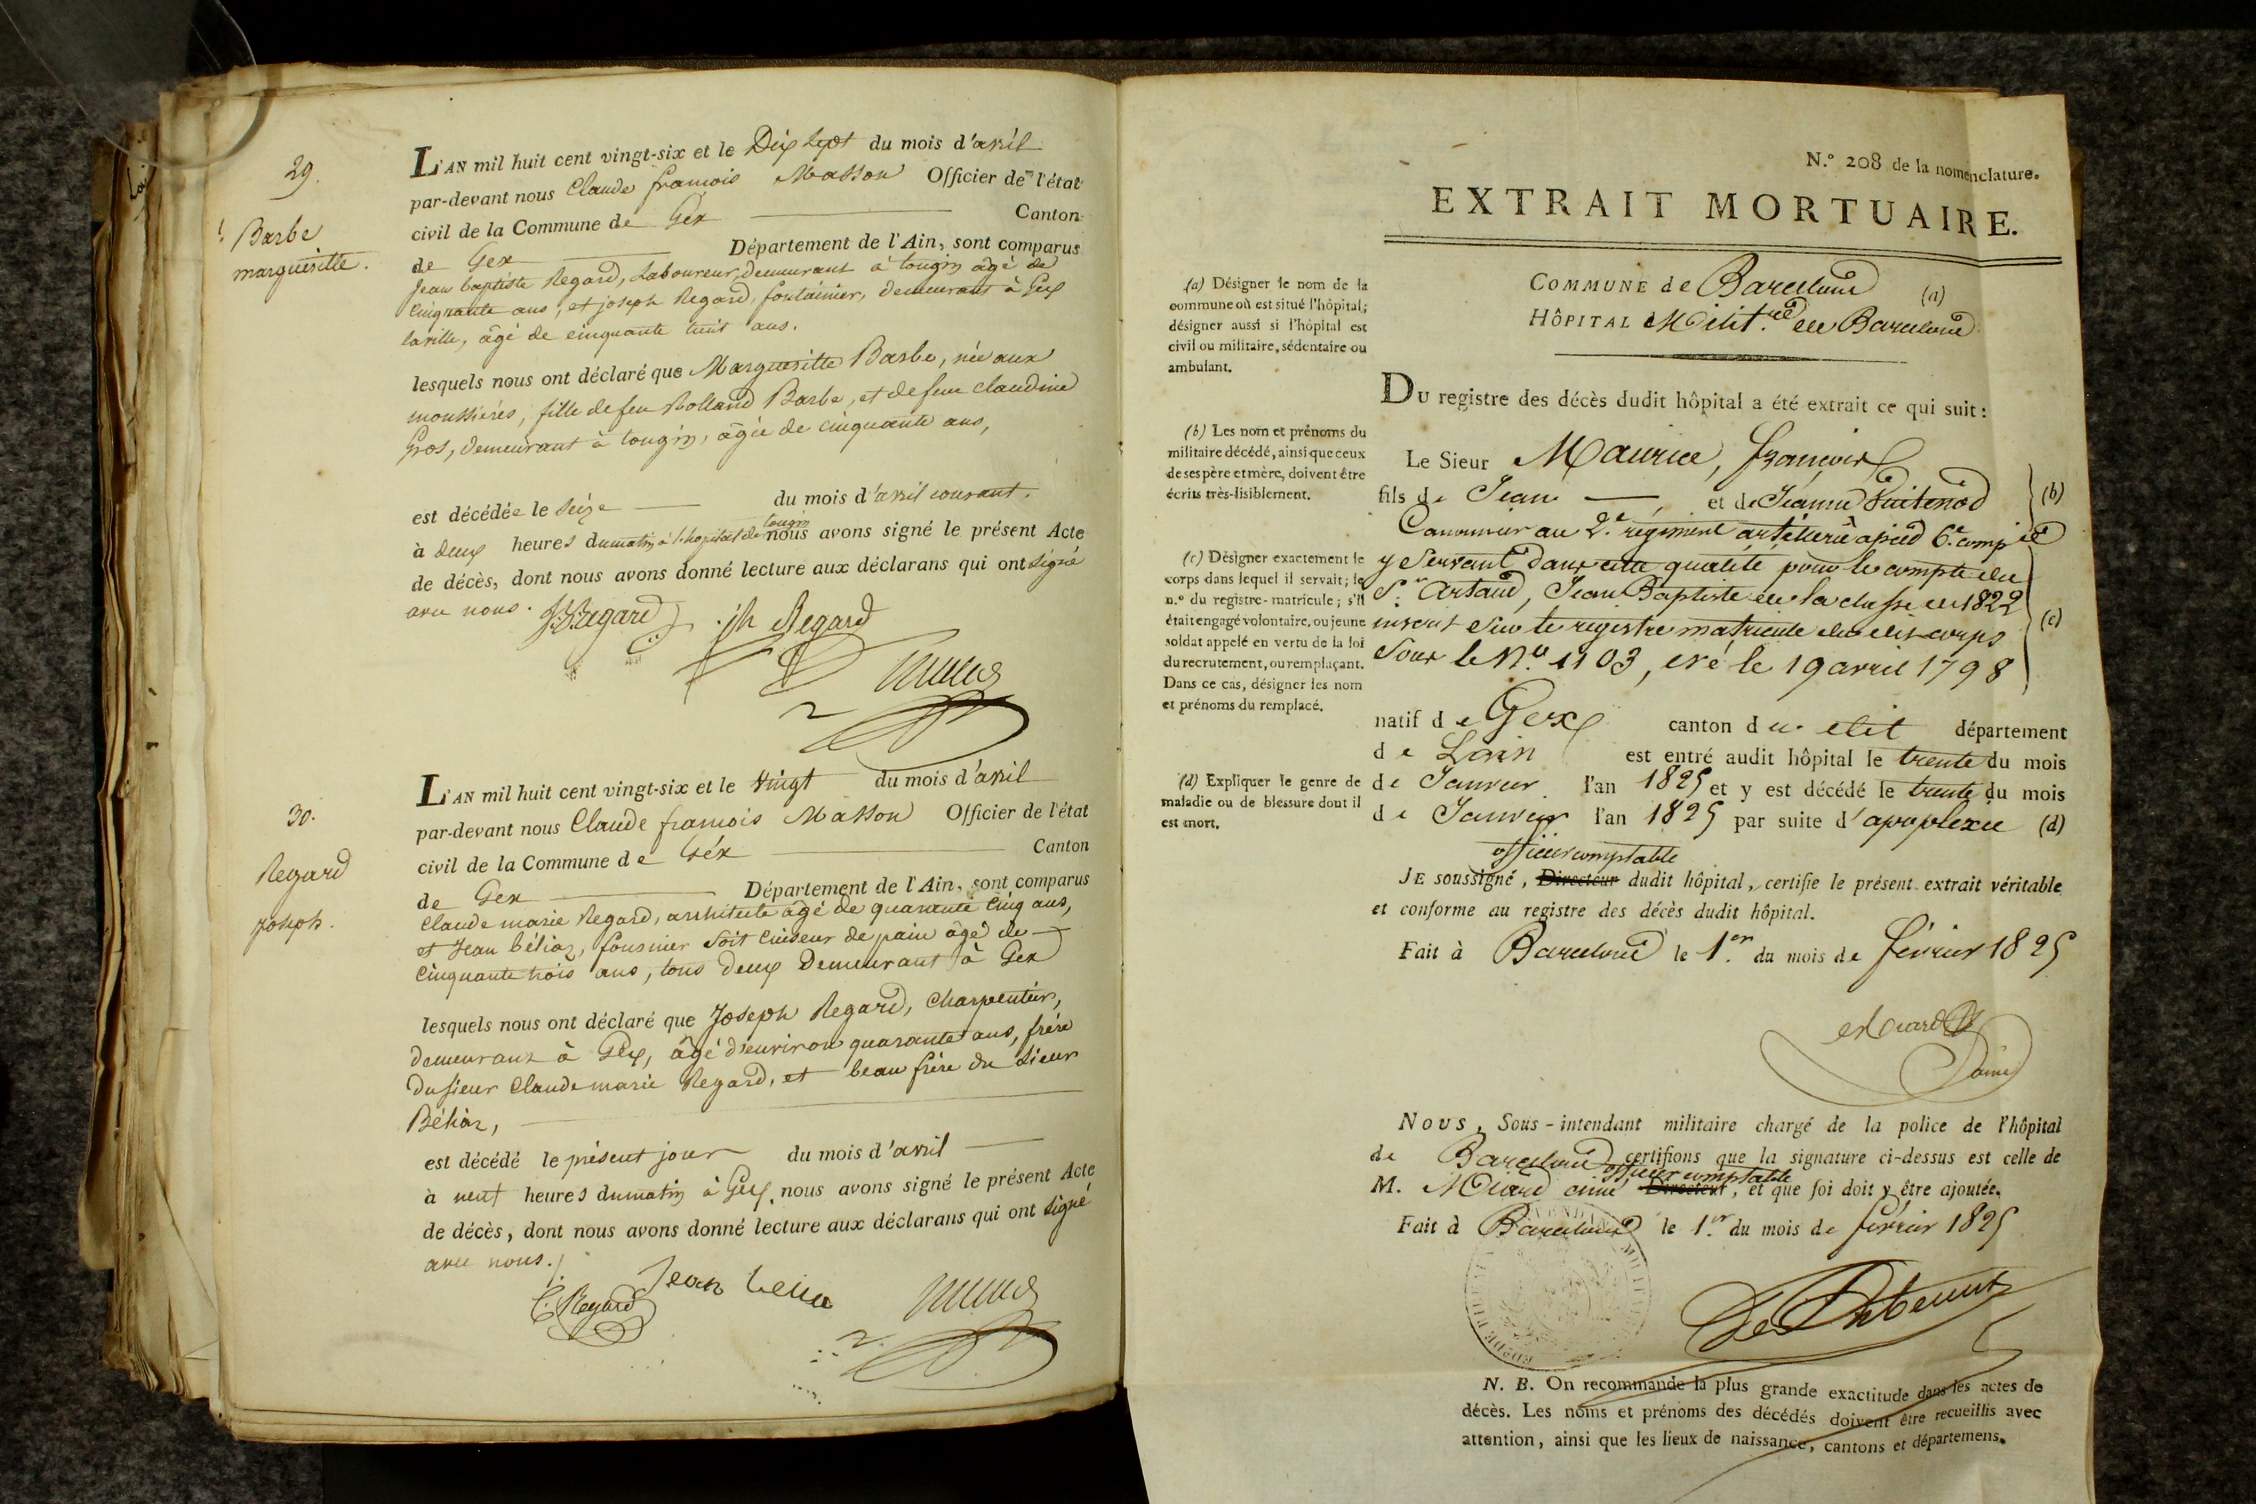 29.
Barbe
margueritte.
L'AN mil huit cent vingt-six et le Dix Sept du mois d'avril
par-devant nous Claude françois Masson Officier de l'état
civil de la Commune de Gex Canton
de Gex Département de l'Ain, sont comparus
Jean baptiste Regard, Laboureur, demeurant à tougin âgé de
Cinquante ans, et joseph Regard, fontainier, demeurant à Gex
laville, âgé de cinquante huit ans.
lesquels nous ont déclaré que Marguerite Barbe, née aux
moussières, fille de feu Rolland Barbe, et de feue claudine
Gros, demeurant à tougin, âgée de cinquante ans,
est décédée le Seize du mois d'avril courant.
à deux heures du matin à l'hopital de tougin nous avons signé le présent Acte
de décès, dont nous avons donné lecture aux déclarans qui ont signé
avec nous. J.B. Regard jh Regard
30.
Regard
joseph.
L'AN mil huit cent vingt-six et le vingt du mois d'avril
par-devant nous Claude françois Masson Officier de l'état
civil de la Commune de Géx Canton
de Gex Département de l'Ain, sont comparus
Claude marie Regard, architecte âgé de quarante cinq ans,
et Jean béliaz, fournier soit Cuiseur de pain âgé de
Cinquante trois ans, tous deux Demeurant à Gex
lesquels nous ont déclaré que Joseph Regard, Charpentier,
demeurant à Gex, âgé d'environ quarante ans, frère
du sieur Claude marie Regard, et beau frère du Sieur
Béliaz,
est décédé le présent jour du mois d'avril
à neuf heures du matin à Gex, nous avons signé le présent Acte
de décès, dont nous avons donné lecture aux déclarans qui ont signé
avec nous.
C. Regard Jean belia
N.º 208 de la nomenclature.
EXTRAIT MORTUAIRE.
COMMUNE de Barcelone (a)
HÔPITAL Milit.re de Barcelone
(a) Désigner le nom de la
commune où est situé l'hôpital;
désigner aussi si l'hôpital est
civil ou militaire, sédentaire ou
ambulant.
DU registre des décès dudit hôpital a été extrait ce qui suit:
(b) Les nom et prénoms du
militaire décédé, ainsi que ceux
de ses père et mère, doivent être
écrits très-lisiblement.
Le Sieur Maurice, françois
fils de Jean, et de Jeanne Puitenod (b)
Canonnier au 2.e régiment artillerie à pied 6.e comp.ie
y Servant dans cette qualité pour le compte du
S.r Artaud, Jean Baptiste de la classe de 1822
inscrit sur le registre matricule du dit corps (c)
Sous le N.º 1103, né le 19 avril 1798
(c) Désigner exactement le
corps dans lequel il servait; le
n.º du registre-matricule; s'il
était engagé volontaire, ou jeune
soldat appelé en vertu de la loi
du recrutement, ou remplaçant.
Dans ce cas, désigner les nom
et prénoms du remplacé.
natif de Gex canton du dit département
de Lain est entré audit hôpital le trente du mois
de Janvier l'an 1825 et y est décédé le trente du mois
de Janvier l'an 1825 par suite d'apoplexie (d)
(d) Expliquer le genre de
maladie ou de blessure dont il
est mort.
officier comptable
JE soussigné, Directeur dudit hôpital, certifie le présent extrait véritable
et conforme au registre des décès dudit hôpital.
Fait à Barcelone le 1.er du mois de février 1825
NOUS, Sous-intendant militaire chargé de la police de l'hôpital
de Barcelone certifions que la signature ci-dessus est celle de
officier comptable
M. Miard ainé Directeur, et que foi doit y être ajoutée.
Fait à Barcelone le 1.er du mois de février 1825
N. B. On recommande la plus grande exactitude dans les actes de
décès. Les noms et prénoms des décédés doivent être recueillis avec
attention, ainsi que les lieux de naissance, cantons et départemens.